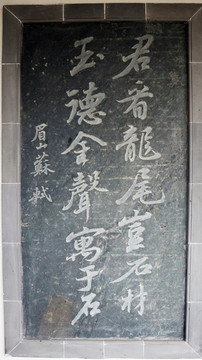 君看龍尾豈石材
玉德金聲寓于石
眉山蘇軾